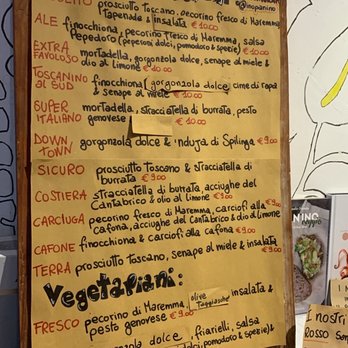 prosciutto Toscano, pecorino fresco di Maremma
Tapenade & insalata €10.00
@inopanino
ALE finocchiona, pecorino fresco di Maremma, salsa
Pepedoro (peperoni dolci, pomodoro & spezie) €10.00
EXTRA mortadella, gorgonzola dolce, senape al miele &
FAVOLOSO olio al limone €10.00
TOSCANINO finocchiona, gorgonzola dolce, cime di rapa
AL SUD & senape al miele €10.00
SUPER mortadella, stracciatella di burrata, pesto
ITALIANO genovese €10.00
DOWN gorgonzola dolce & 'nduja di Spilinga €9.00
TOWN
SICURO prosciutto Toscano & stracciatella di
burrata €9.00
COSTIERA stracciatella di burrata, acciughe del
Cantabrico & olio al limone €9.00
CARCIUGA pecorino fresco di Maremma, carciofi alla
cafona, acciughe del Cantabrico & olio al limone
CAFONE finocchiona & carciofi alla cafona €9.00
TERRA prosciutto Toscano, senape al miele & insalata
€9.00
Vegetariani:
FRESCO pecorino di Maremma, olive taggiasche insalata &
pesto genovese €9.00
gorgonzola dolce, friarielli, salsa
dolci, pomodoro & spezie) &
NINO
I nostri
Rosso